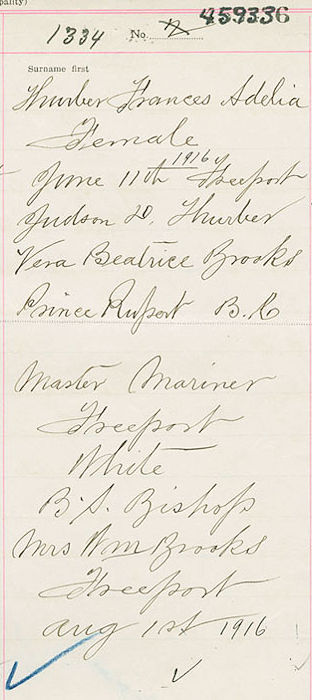 pality)
459336
1334 No. 12
Surname first
Thurber Frances Adelia
Female
June 11th 1916 Freeport
Judson D. Thurber
Vera Beatrice Brooks
Prince Rupert B.C
Master Mariner
Freeport
White
B. S. Bishop
Mrs Wm Brooks
Freeport
Aug 1st 1916